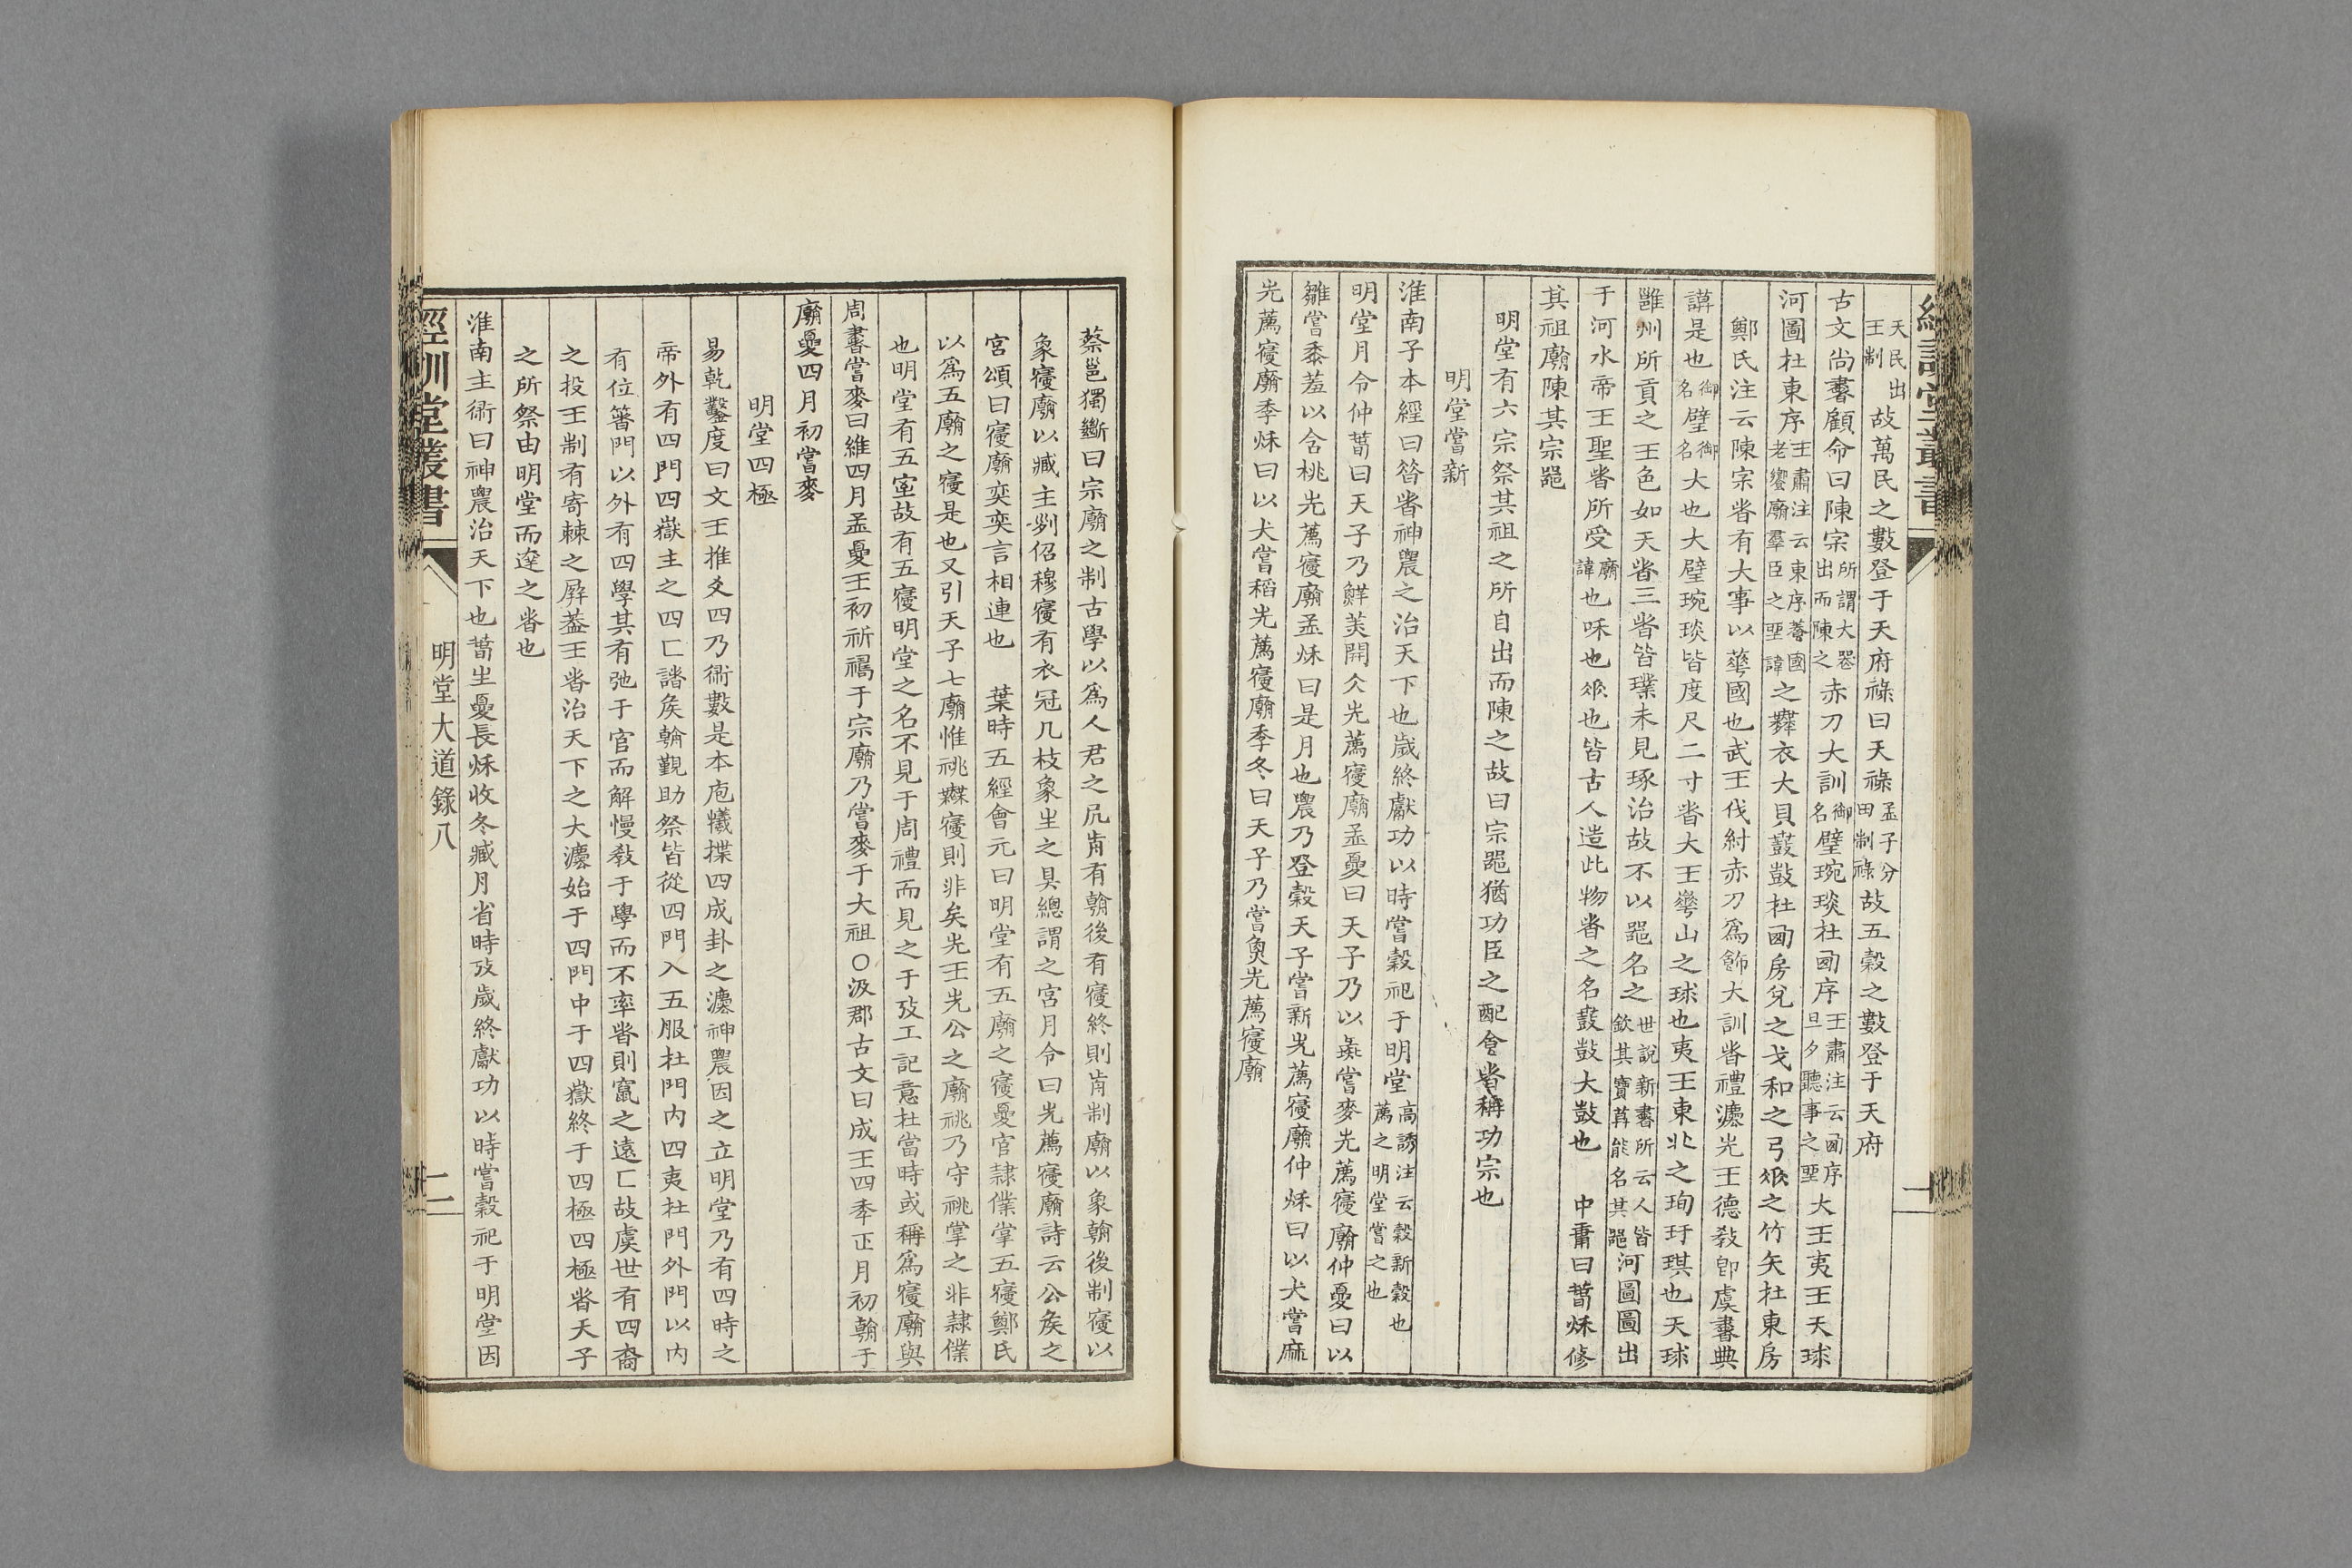 經訓堂叢書
一
天民出王制故萬民之數登于天府祿曰天祿孟子分田制祿故五穀之數登于天府
古文尚書顧命曰陳宗所謂大器出而陳之赤刀大訓御名璧琬琰杜𠧧序王肅注云𠧧序旦夕聽事之𦤶大王夷王天球
河圖杜東序王肅注云東序養國老饗廟羣臣之𦤶諱之舞衣大貝鼖鼓杜𠧧房兌之戈和之弓𠂢之竹矢杜東房
鄭氏注云陳宗𣥐有大事以華國也武王伐紂赤刀爲飾大訓𣥐禮灋先王德敎卽虞書典
謨是也御名璧御名大也大璧琬琰皆度尺二寸𣥐大王華山之球也夷王東北之珣玗琪也天球
雝州所貢之王色如天𣥐三𣥐皆璞未見琢治故不以器名之世說新書所云人皆欽其寶莫能名其器河圖圖出
于河水帝王聖𣥐所受廟諱也和也𠂢也皆古人造此物𣥐之名鼖鼓大鼓也　中庸曰萅秌修
其祖廟陳其宗器
明堂有六宗祭其祖之所自出而陳之故曰宗器猶功臣之配食𣥐稱功宗也
明堂嘗新
淮南子本經曰昔𣥐神農之治天下也歲終獻功以時嘗穀祀于明堂高誘注云穀新穀也薦之明堂嘗之也
明堂月令仲萅曰天子乃鮮羔開冰先薦寑廟孟夏曰天子乃以彘嘗麥先薦寑廟仲夏曰以
雛嘗黍羞以含桃先薦寑廟孟秌曰是月也農乃登穀天子嘗新先薦寑廟仲秌曰以犬嘗麻
先薦寑廟季秌曰以犬嘗稻先薦寑廟季冬曰天子乃嘗魚先薦寑廟
蔡邕獨斷曰宗廟之制古學以爲人君之凥歬有朝後有寑終則歬制廟以象朝後制寑以
象寑廟以臧主列佋穆寑有衣冠几杖象生之具總謂之宮月令曰先薦寑廟詩云公矦之
宮頌曰寑廟奕奕言相連也　葉時五經會元曰明堂有五廟之寑夏官隸僕掌五寑鄭氏
以爲五廟之寑是也又引天子七廟惟祧無寑則非矣先王先公之廟祧乃守祧掌之非隸僕
也明堂有五室故有五寑明堂之名不見于周禮而見之于攷工記意杜當時或稱爲寑廟與
周書嘗麥曰維四月孟夏王初祈禱于宗廟乃嘗麥于大祖〇汲郡古文曰成王四年正月初朝于
廟夏四月初嘗麥
明堂四極
易乾鑿度曰文王推爻四乃術數是本庖犧揲四成卦之灋神農因之立明堂乃有四時之
帝外有四門四嶽主之四匚諸矦朝覲助祭皆從四門入五服杜門內四夷杜門外門以內
有位籓門以外有四學其有弛于官而解慢敎于學而不率𣥐則竄之遠匚故虞世有四裔
之投王制有寄棘之屛葢王𣥐治天下之大灋始于四門中于四嶽終于四極四極𣥐天子
之所祭由明堂而達之𣥐也
淮南主術曰神農治天下也萅生夏長秌收冬臧月省時攷歲終獻功以時嘗穀祀于明堂因
經訓堂叢書
明堂大道錄八
二